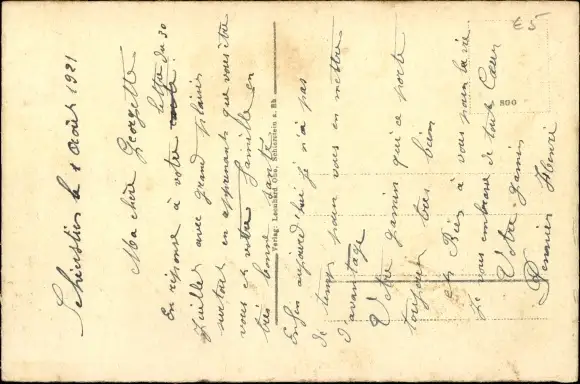 Schierstein le 1 Août 1921
Ma chère Georgette
En réponse à votre lettre du 30
Juillet avec grand plaisir
surtout en apprenant que vous être
vous et votre famille en
très bonne santé
Enfin aujourd'hui je n'a pas
de temps pour vous en mettre
d'avantage
Votre gamin qui ce porte
toujours très bien
et Rien à vous pour la vie.
Je vous embrasse de tout Cœur
Votre gamin
Henri
Verlag: Leonhard Ohs, Schierstein a. Rh